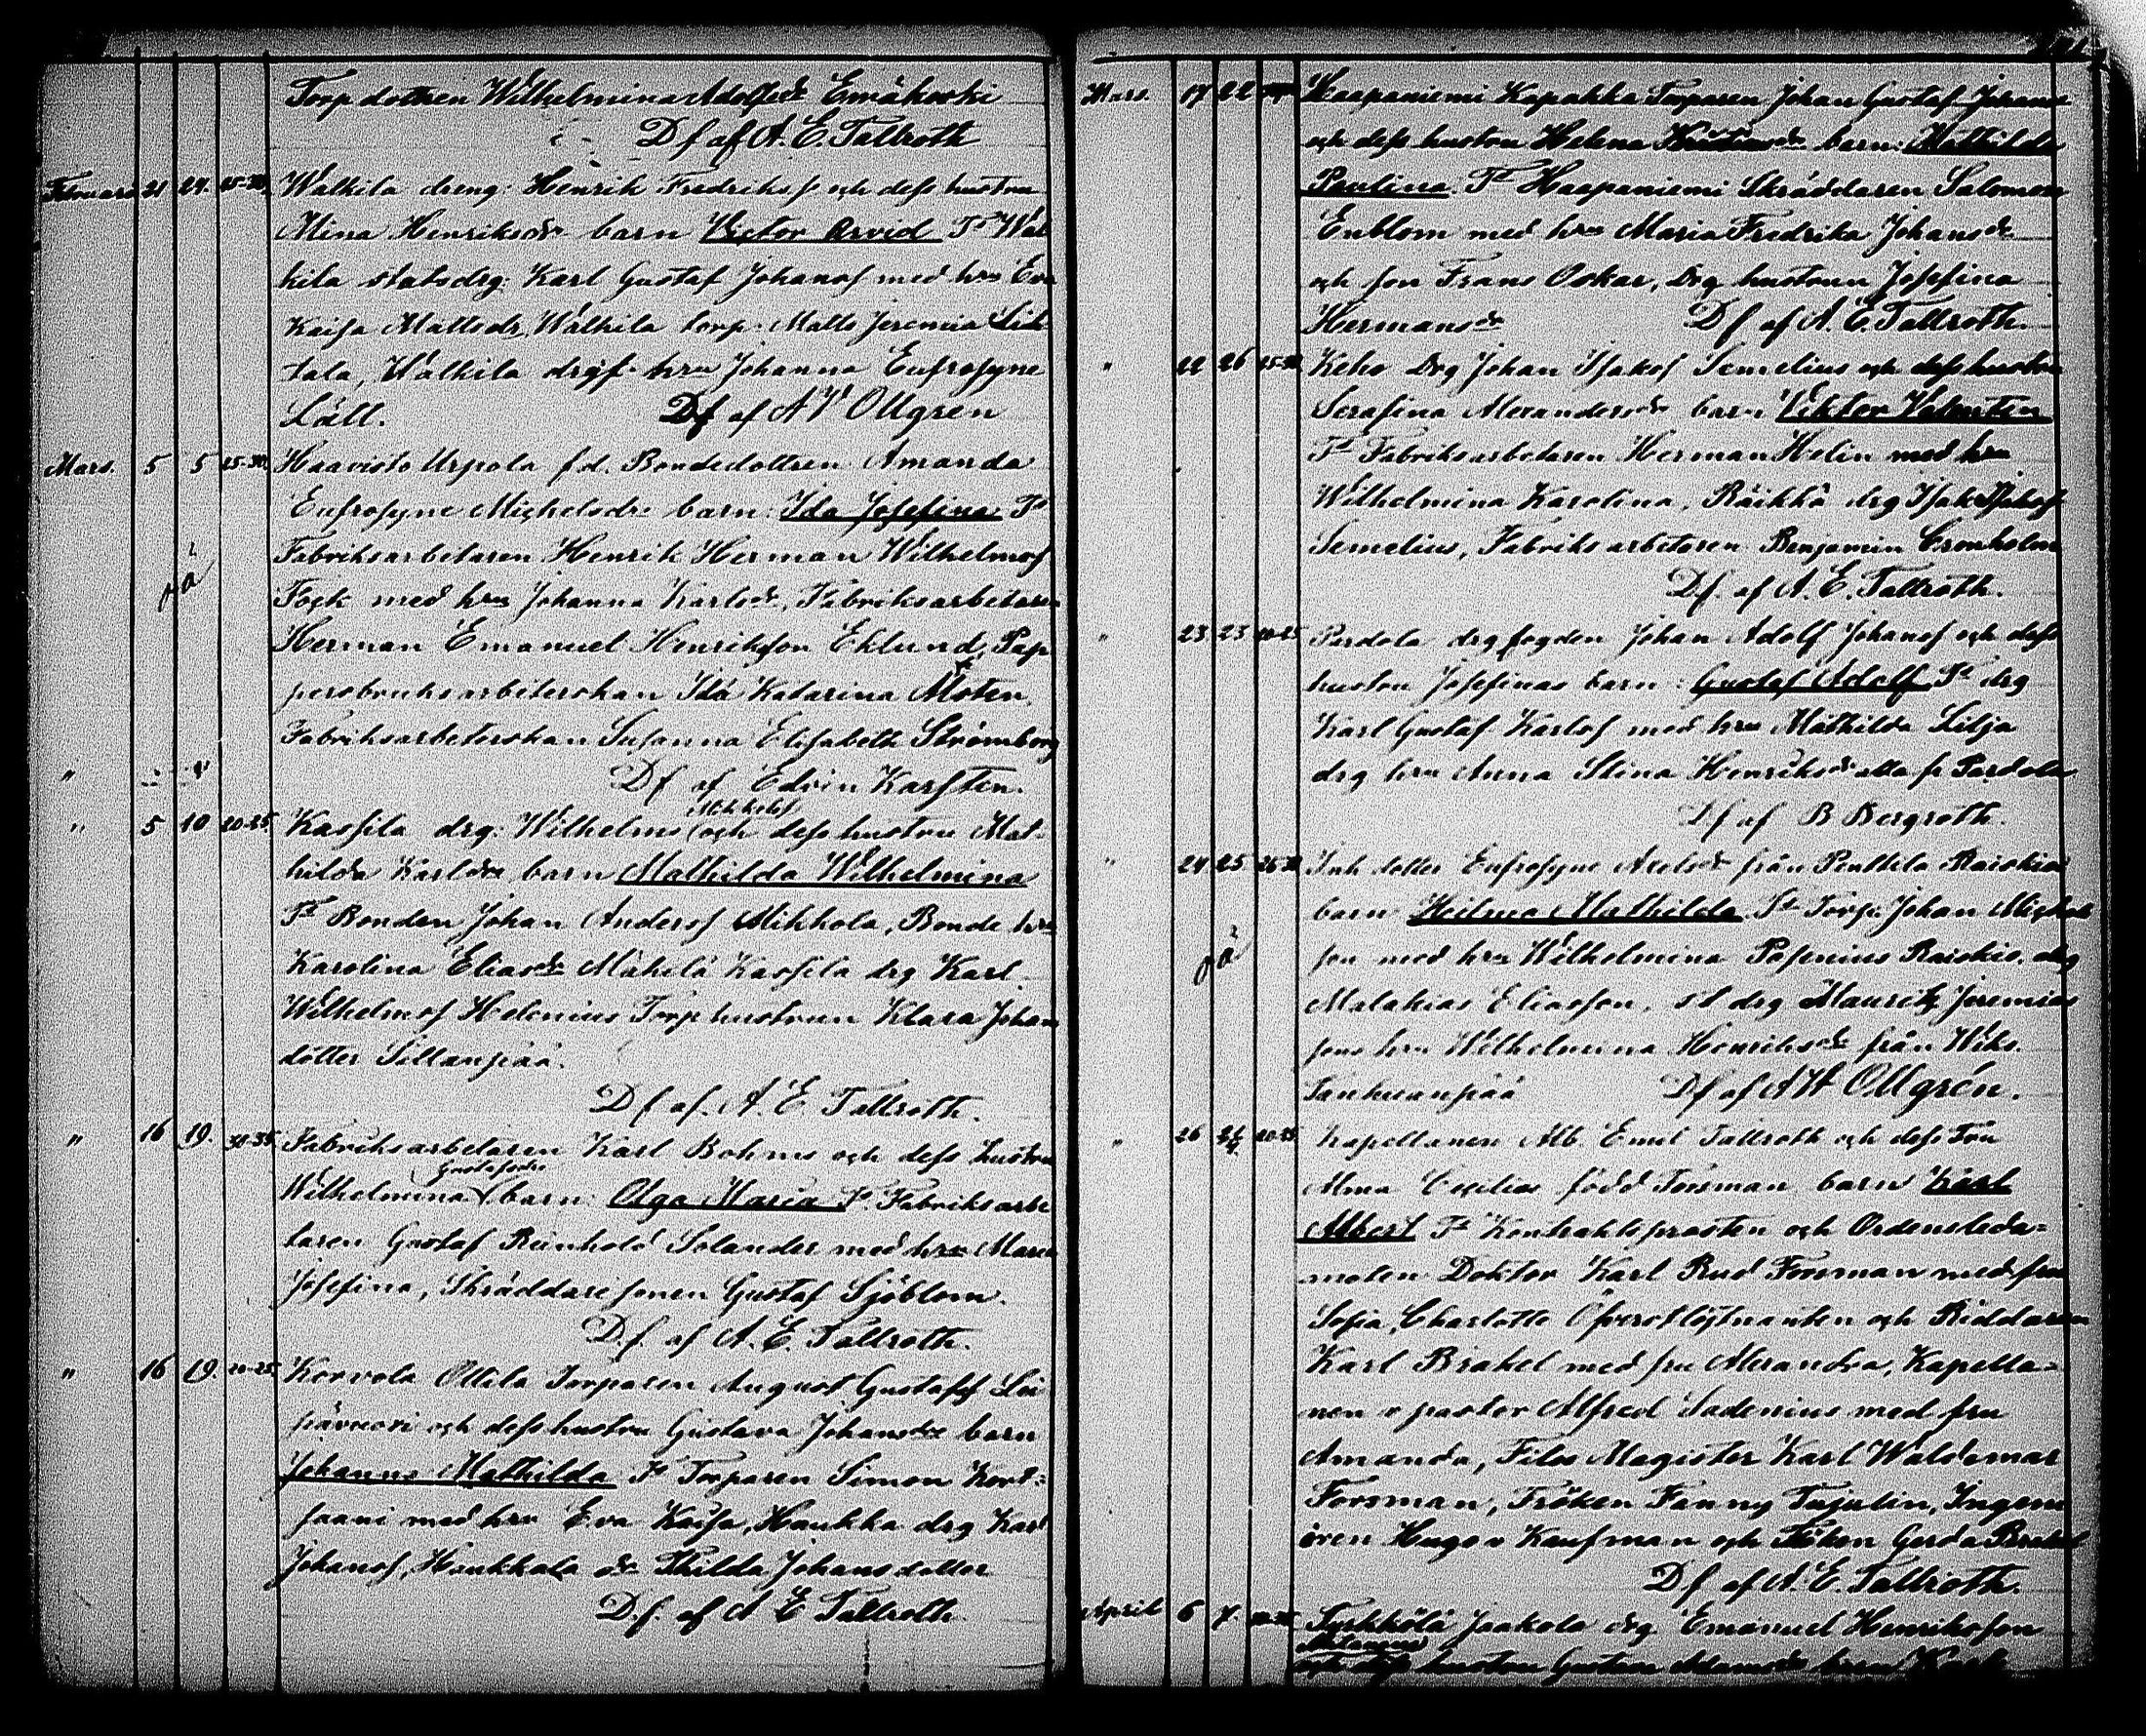 Torp dottren Wilhelmina Adolfsdr Emäkoski
Df af A. E. Tallroth
Februari 21 24. 25-30. Walkila dreng: Henrik Fredrikss och dess hustru
Mina Henriksdr barn Victor Arvid Ts Wal
kila statsdrg: Karl Gustaf Johanss med hru Eva
Kaisa Mattsdr, Walkila torp: Matts Jeremia
tala, Walkila drgf. hru Johanna Eufrosyne
Läll. Df af A W Ollgren
Mars. 5 5 25-30. Haavisto Urpola f.d. Bondedottren Amanda
Eufrosyne Michelsdr barn: Ida Josefina Ts
Fabriksarbetaren Henrik Herman Wilhelmss
Fock med hru Johanna Karlsdr, Fabriksarbetaren
Herman Emanuel Henriksson Eklund, Pap
persbruksarbeterskan Ida Katarina Moten,
Fabriksarbeterskan Susanna Elisabeth Strömberg
Df af Edvin Karsten.
" 5 10 20-25. Kassila drg: Wilhelms och dess hustru Mat-
hilda Karlsdr barn Mathilda Wilhelmina
Ts Bonden Johan Anderss Mikkola, Bonde hru
Karolina Eliasdr Mäkilä Kassila drg Karl
Wilhelmss Helenius Torp hustrun Klara Johans
dotter Sillanpää.
Df af. A. E Tallroth.
" 16 19. 30-35. Fabriksarbetaren Karl Bohms och dess hustru
Gustafsdr
Wilhelmina barn: Olga Maria Ts Fabriksarbe
taren Gustaf Reinhold Solander med hru Maria
Josefina, Skräddare sonen Gustaf Sjöblom.
Df. af A. E. Tallroth.
" 16 19. 20-25. Korvola Ottila Torparen August Gustafss Loi
pävuori och dess hustru Gustava Johansdr barn
Johanna Mathilda Ts Torparen Simon Kort=
saari med hru Eva Kaisa, Haukka drg Karl
Johanss, Haukkala dr Thilda Johansdotter
D.f. af A E Tallroth
Mars. 17 22 Haapaniemi Kapakka Torparen Johan Gustaf Johanss
och dess hustru Helena barn: Mathilda
Paulina. Ts Haapaniemi Skräddaren Salomon
Enblom med hru Maria Fredrika Johansdr
och son Frans Oskar, Drg hustrun Josefina
Hermansdr Df af A. E. Tallroth.
" 22 26 25-30 Keho Drg Johan Isakss Semelius och dess hustru
Serafina Alexandersdr barn Viktor Valentin
Ts Fabriksarbetaren Herman Helin med hru
Wilhelmina Karolina, Räikkä drg Isak Isakss
Semelius, Fabriks arbetaren Benjamin Cronholm
Df. af A. E. Tallroth.
" 23 23 20-25 Pardola drg fogden Johan Adolf Johanss och dess
hustru Josefinas barn: Gustaf Adolf Ts drg
Karl Gustaf Karlss med hru Mathilda Lilja
drg hru Anna Stina Henriksdr alla fr Pardola
Df af B Bergroth.
" 24 25 25-30 Inh dotter Eufrosyne Axelsdr från Penttila Raiskio
barn Hilma Mathilda Ts Torp: Johan Michels
son med hru Wilhelmina Pasenius Raiskio, drg
Malakias Eliasson, st drg Mauritz Jeremias
sons hru Wilhelmina Henriksdr från Wiks.
Tanhuanpää Df af A W Ollgrén.
" 26 Kapellanen Alb. Emil Tallroth och dess Fru
Alma Cecilias född Forsman barn Karl
Albert Ts Kontraktsprosten och Ordensleda=
moten Doktor Karl Rud Forsman med fru
Sofia Charlotta Öfverstlöjtnanten och Riddaren
Karl Brakel med fru Alexandra, Kapella-
nen v pastor Alfred Sadenius med fru
Amanda, Filos Magister Karl Waldemar
Forsman, Fröken Fanny Tujulin, Ingeni
ören Hugo v Kaufman och Fröken Gerda Brakel
Df af A. E. Tallroth.
April 6 7. Tyrkkölä Jaakola drg Emanuel Henriksson
och dess hustru Gustava Adamsdr barn Karl